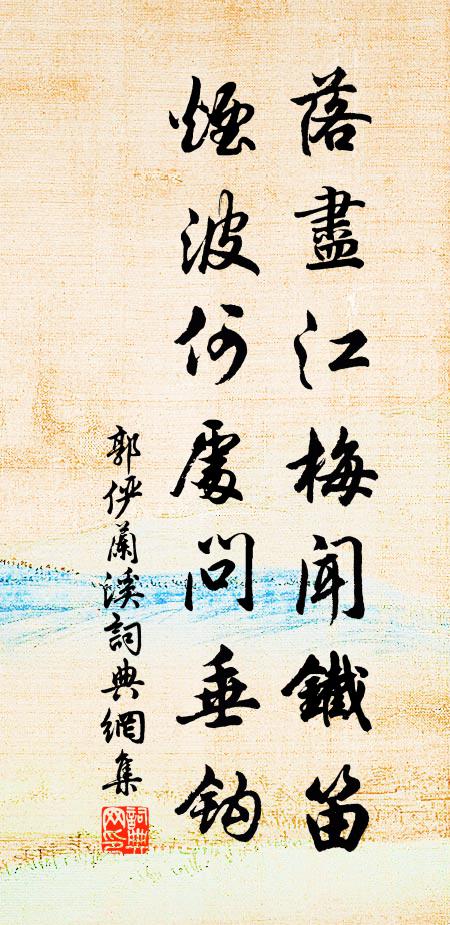 落盡江梅聞鐵笛
煙波何處問垂鉤
郭伻蘭溪詞典網集
詞典網印